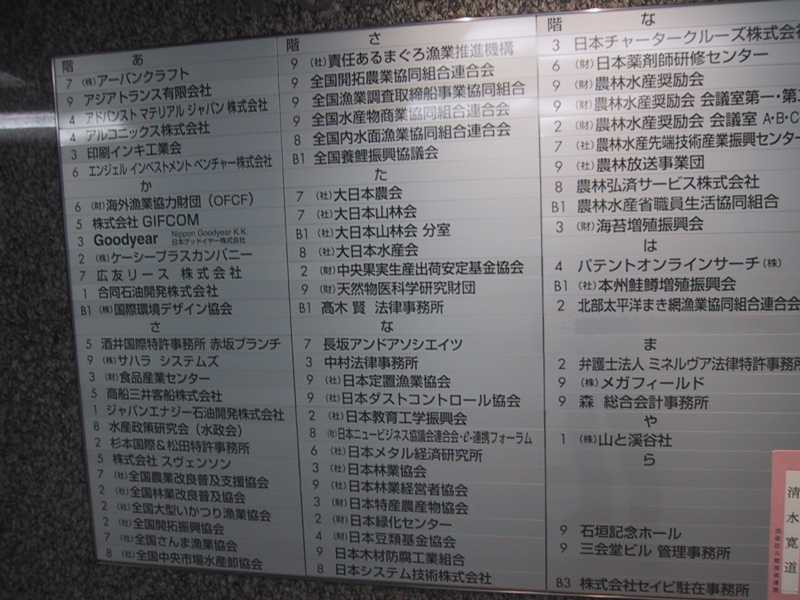 階 あ
7 (株)アーバンクラフト
9 アジアトランス有限会社
4 アドバンスト マテリアル ジャパン 株式会社
4 アルコニックス株式会社
3 印刷インキ工業会
6 エンジェル インベストメント ベンチャー株式会社
か
6 (財)海外漁業協力財団(OFCF)
5 株式会社 GIFCOM
3 Goodyear Nippon Goodyear K.K. 日本グッドイヤー株式会社
2 (株)ケーシープラスカンパニー
7 広友リース 株式会社
1 合同石油開発株式会社
B1 (株)国際環境デザイン協会
さ
5 酒井国際特許事務所 赤坂ブランチ
9 (株)サハラ システムズ
3 (財)食品産業センター
5 商船三井客船株式会社
1 ジャパンエナジー石油開発株式会社
8 水産政策研究会(水政会)
2 杉本国際&松田特許事務所
5 株式会社 スヴェンソン
7 (社)全国農業改良普及支援協会
2 (社)全国林業改良普及協会
2 (社)全国大型いかつり漁業協会
2 (社)全国開拓振興協会
7 (社)全国さんま漁業協会
8 (社)全国中央市場水産卸協会
階 さ
9 (社)責任あるまぐろ漁業推進機構
9 全国開拓農業協同組合連合会
9 全国漁業調査取締船事業協同組合
9 全国水産物商業協同組合連合会
8 全国内水面漁業協同組合連合会
B1 全国養鯉振興協議会
た
7 (社)大日本農会
7 (社)大日本山林会
B1 (社)大日本山林会 分室
8 (社)大日本水産会
2 (財)中央果実生産出荷安定基金協会
9 (財)天然物医科学研究財団
B1 髙木 賢 法律事務所
な
7 長坂アンドアソシエイツ
3 中村法律事務所
9 (社)日本定置漁業協会
9 (社)日本ダストコントロール協会
2 (社)日本教育工学振興会
8 (社)日本ニュービジネス協議会連合会・e-連携フォーラム
6 (社)日本メタル経済研究所
3 (社)日本林業協会
9 (社)日本林業経営者協会
3 (財)日本特産農産物協会
2 (財)日本緑化センター
4 (財)日本豆類基金協会
9 日本木材防腐工業組合
8 日本システム技術株式会社
階 な
3 日本チャータークルーズ株式会社
6 (財)日本薬剤師研修センター
9 (財)農林水産奨励会
9 (財)農林水産奨励会 会議室第一・第二
2 (財)農林水産奨励会 会議室 A・B・C
7 (社)農林水産先端技術産業振興センター
9 (社)農林放送事業団
8 農林弘済サービス株式会社
B1 農林水産省職員生活協同組合
3 (財)海苔増殖振興会
は
4 パテントオンラインサーチ(株)
B1 (社)本州鮭鱒増殖振興会
2 北部太平洋まき網漁業協同組合連合会
ま
2 弁護士法人 ミネルヴァ法律特許事務所
9 (株)メガフィールド
9 森 総合会計事務所
や
1 (株)山と溪谷社
ら
9 石垣記念ホール
9 三会堂ビル 管理事務所
B3 株式会社セイビ駐在事務所
清水寛道